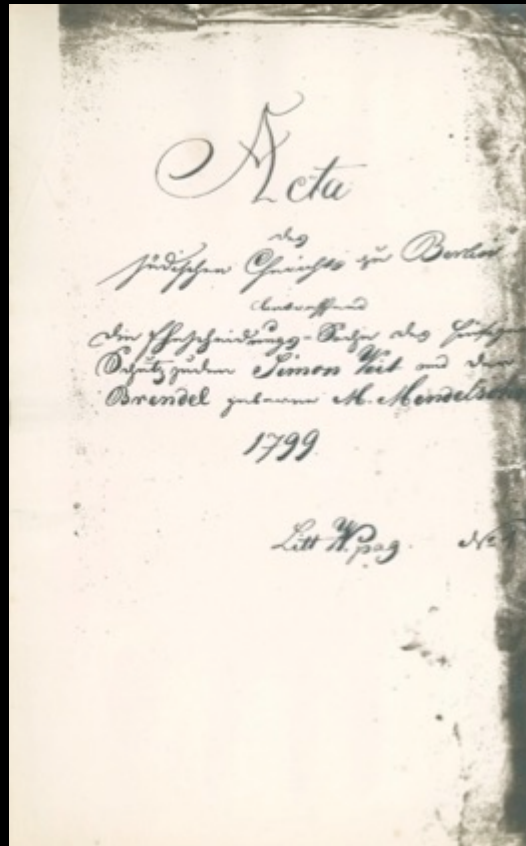 Acta
des
jüdischen Gerichts zu Berlin
betreffend
die Ehescheidungs-Sache des hiesigen
Schutzjuden Simon Veit und der
Brendel geborene M. Mendelsohn
1799.
Litt W. pag. No 1